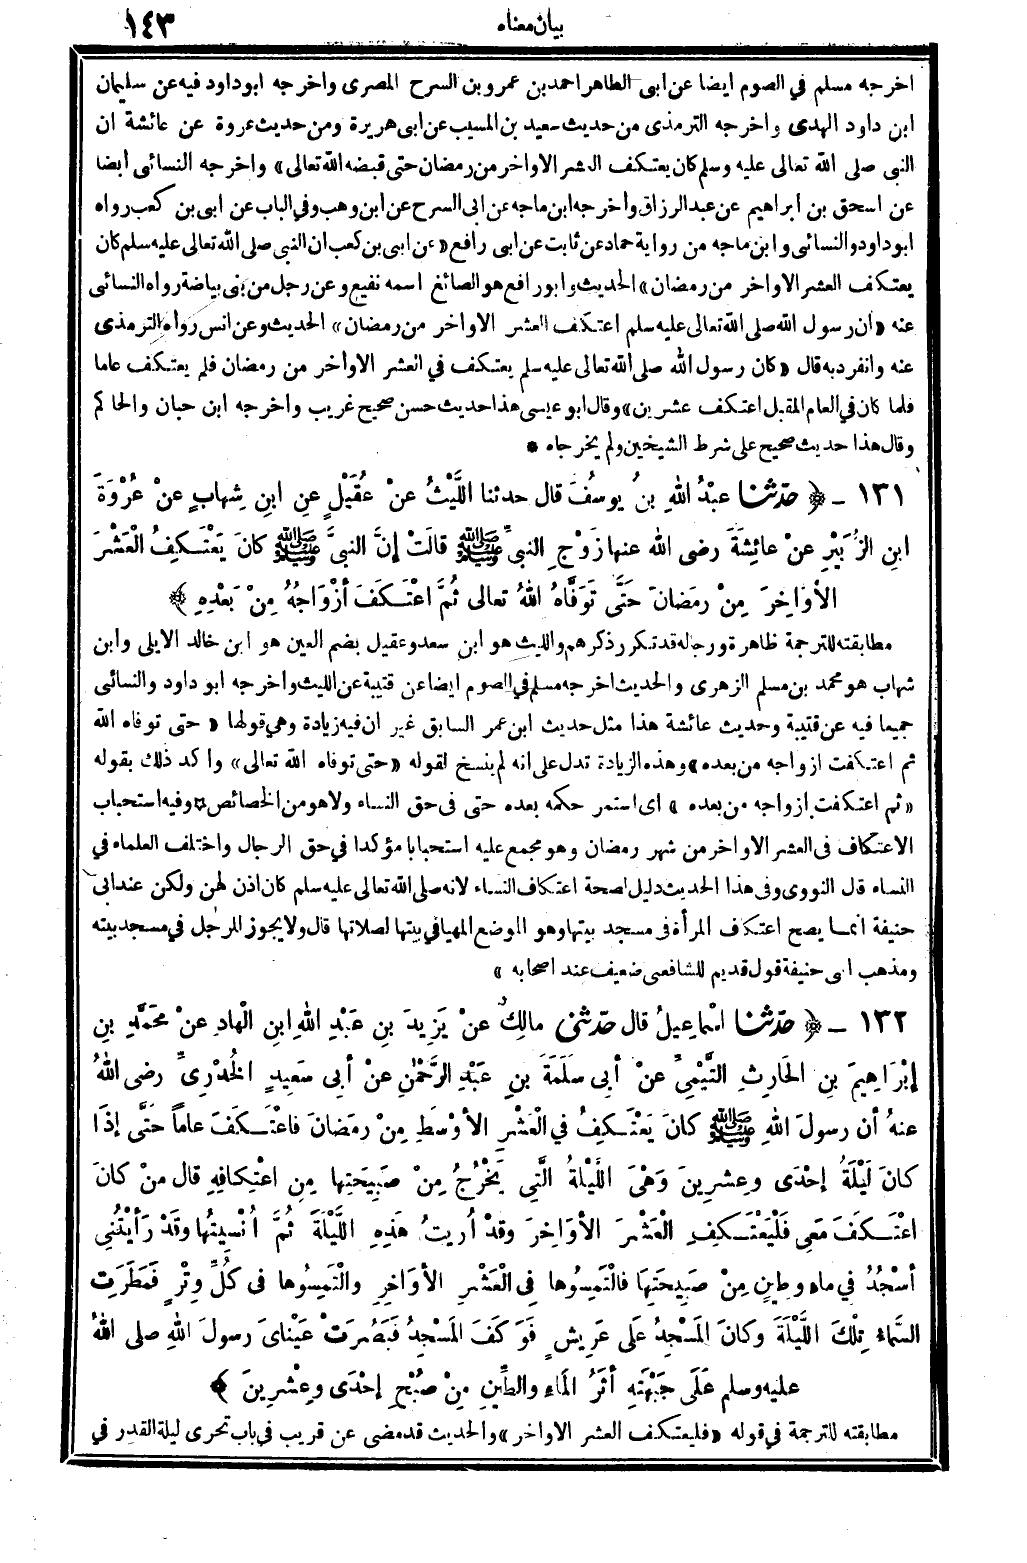 بيان معناه
١٤٣
اخرجه مسلم في الصوم ايضا عن ابى الطاهر احمد بن عمرو بن السرح المصرى واخرجه ابو داود فيه عن سليمان
ابن داود المهدى واخرجه الترمذى من حديث سعيد بن المسيب عن ابى هريرة ومن حديث عروة عن عائشة ان
النبى صلى الله تعالى عليه وسلم كان يعتكف العشر الاواخر من رمضان حتى قبضه الله تعالى» واخرجه النسائى ايضا
عن اسحق بن ابراهيم عن عبد الرزاق واخرجه ابن ماجه عن ابى السرح عن ابن وهب وفي الباب عن ابى بن كعب رواه
ابو داود والنسائى وابن ماجه من رواية حماد عن ثابت عن ابى رافع «عن ابى بن كعب ان النبى صلى الله تعالى عليه سلم كان
يعتكف العشر الاواخر من رمضان» الحديث وابو رافع هو الصائغ اسمه نفيع وعن رجل من بنى بياضة رواه النسائى
عنه «ان رسول الله صلى الله تعالى عليه سلم اعتكف العشر الاواخر من رمضان» الحديث وعن انس رواه الترمذى
عنه وانفرد به قال «كان رسول الله صلى الله تعالى عليه سلم يعتكف في العشر الاواخر من رمضان فلم يعتكف عاما
فلما كان في العام المقبل اعتكف عشرين» وقال ابو عيسى هذا حديث حسن صحيح غريب واخرجه ابن حبان والحاكم
وقال هذا حديث صحيح على شرط الشيخين ولم يخرجاه *
١٣١ - ﴿ حَدَّثَنَا عَبْدُ اللهِ بنُ يوسُفَ قال حدثنا اللَّيْثُ عنْ عُقَيْلٍ عنِ ابنِ شِهابٍ عنْ عُرْوَةَ
ابنِ الزُّبَيْرِ عنْ عائِشَةَ رضى الله عنها زَوْجِ النبىِّ ﷺ قالَتْ إنَّ النبىَّ ﷺ كانَ يَعْتَكِفُ الْعَشْرَ
الأوَاخِرَ مِنْ رمَضانَ حَتَّى تَوَفَّاهُ اللهُ تعالى ثُمَّ اعْتَكَفَ أزْوَاجُهُ مِنْ بَعْدِهِ ﴾
مطابقته للترجمة ظاهرة ورجاله قد تكرر ذكرهم والليث هو ابن سعد وعقيل بضم العين هو ابن خالد الايلى وابن
شهاب هو محمد بن مسلم الزهرى والحديث اخرجه مسلم في الصوم ايضا عن قتيبة عن الليث واخرجه ابو داود والنسائى
جميعا فيه عن قتيبة وحديث عائشة هذا مثل حديث ابن عمر السابق غير ان فيه زيادة وهى قولها «حتى توفاه الله
ثم اعتكفت ازواجه من بعده» وهذه الزيادة تدل على انه لم ينسخ لقوله «حتى توفاه الله تعالى» واكد ذلك بقوله
«ثم اعتكفت ازواجه من بعده» اى استمر حكمه بعده حتى فى حق النساء ولا هو من الخصائص * وفيه استحباب
الاعتكاف فى العشر الاواخر من شهر رمضان وهو مجمع عليه استحبابا مؤكدا في حق الرجال واختلف العلماء في
النساء قال النووى وفى هذا الحديث دليل لصحة اعتكاف النساء لانه صلى الله تعالى عليه سلم كان اذن لهن ولكن عند ابى
حنيفة انما يصح اعتكاف المرأة فى مسجد بيتها وهو الموضع المهيا في بيتها لصلاتها قال ولا يجوز للرجل في مسجد بيته
ومذهب ابى حنيفة قول قديم للشافعى ضعيف عند اصحابه »
١٣٢ - ﴿ حَدَّثَنَا اسْماعِيلُ قال حَدَّثَنِى مالِكٌ عنْ يَزِيدَ بنِ عَبْدِ اللهِ ابنِ الْهادِ عنْ مُحَمَّدِ بنِ
إبْرَاهِيمَ بنِ الحَارِثِ التَّيْمِىِّ عنْ أبى سَلَمَةَ بنِ عَبْدِ الرَّحْمٰنِ عنْ أبى سَعِيدٍ الخُدْرِىِّ رضى اللهُ
عنهُ أن رسولَ اللهِ ﷺ كانَ يَعْتَكِفُ في الْعَشْرِ الأوْسَطِ مِنْ رمَضانَ فاعْتَكَفَ عاماً حَتَّى إذَا
كانَ لَيْلَةُ إحْدَى وعِشرِينَ وَهْىَ اللَّيْلَةُ الَّتِي يَخْرُجُ مِنْ صَبِيحَتِها مِنِ اعْتِكافِهِ قال منْ كانَ
اعْتَكَفَ مَعِي فَلْيَعْتَكِفِ الْعَشْرَ الأوَاخِرَ وقدْ أُرِيتُ هَذِهِ اللَّيْلَةَ ثُمَّ أُنْسِيتُها وقَدْ رَأيْتُنِى
أسْجُدُ في ماءٍ وطِينٍ مِنْ صَبِيحَتِهَا فالْتَمِسُوها فِى الْعَشْرِ الأوَاخِرِ والْتَمِسُوها فى كُلِّ وِتْرٍ فَمَطَرَتِ
السَّماءُ تِلْكَ اللَّيْلَةَ وكانَ المَسْجِدُ على عَرِيشٍ فَوَكَفَ المَسْجِدُ فَبَصُرَتْ عَيْناىَ رسولَ اللهِ صلى اللهُ
عليه وسلم عَلَى جَبْهَتِهِ أثَرُ المَاءِ والطِّينِ مِنْ صُبْحِ إحْدَى وعِشْرِينَ ﴾
مطابقته للترجمة في قوله «فليعتكف العشر الاواخر» والحديث قد مضى عن قريب في باب تحرى ليلة القدر في